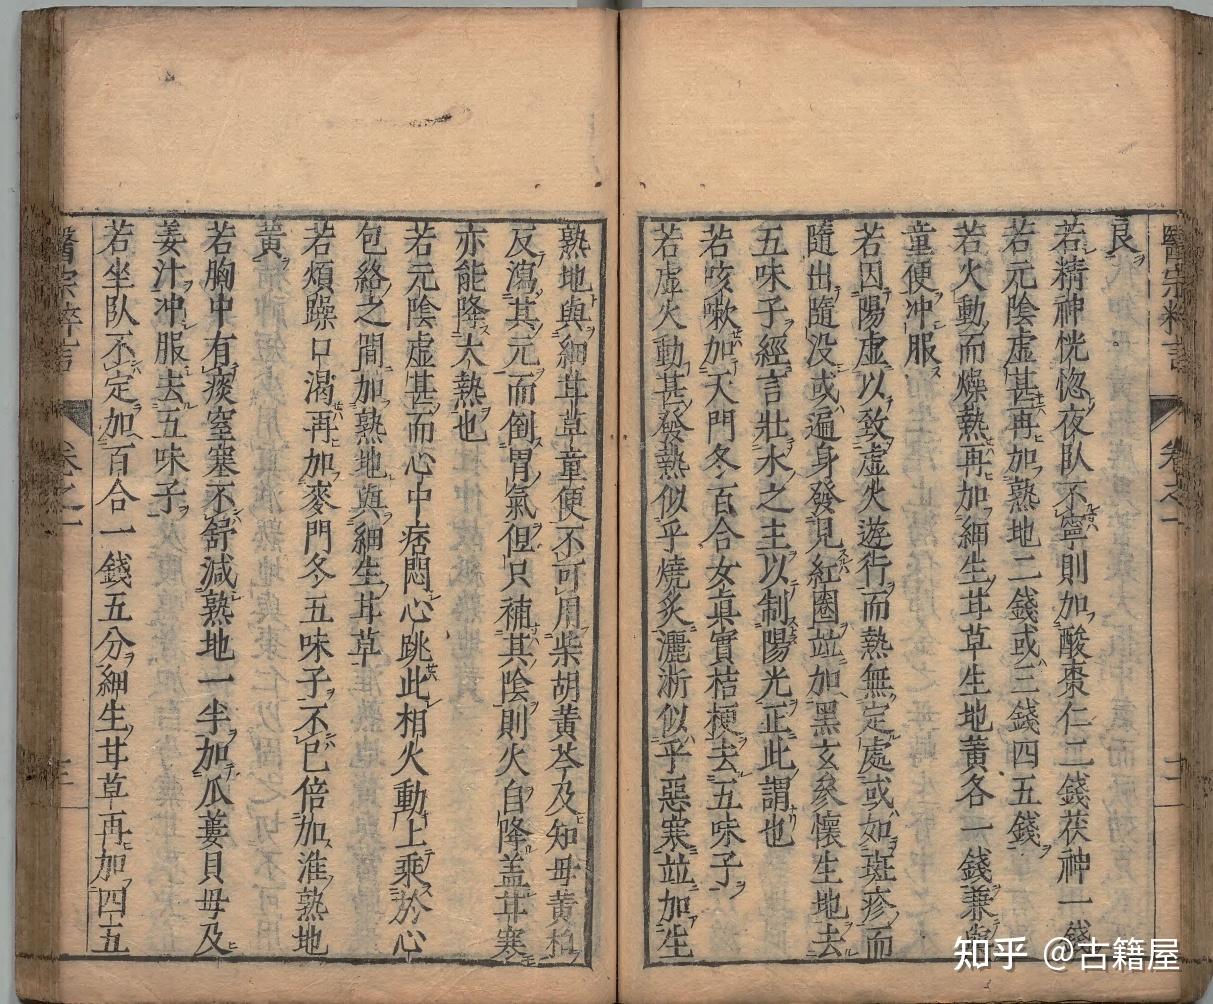 良
若精神恍惚夜臥不寧則加酸棗仁二錢茯神一錢
若元陰虛甚再加熟地二錢或三錢四五錢
若火動而燥熱再加細生甘草生地黃各一錢兼與
童便冲服
若因陽虛以致虛火遊行而熱無定處或如斑疹而
隨出隨没或遍身發見紅圈並加黑玄參懷生地去
五味子經言壯水之主以制陽光正此謂也
若咳嗽加天門冬百合女真實桔梗去五味子
若虛火動甚發熱似乎燒炙灑淅似乎惡寒並加生
熟地與細甘草童便不可用柴胡黃芩及知母黃栢
反瀉其元而倒胃氣但只補其陰則火自降盖甘寒
亦能降大熱也
若元陰虛甚而心中痞悶心跳此相火動上乘於心
包絡之間加熟地與細生甘草
若煩躁口渴再加麥門冬五味子不已倍加淮熟地
黃
若胸中有痰窒塞不舒減熟地一半加瓜蔞貝母及
姜汁冲服去五味子
若坐臥不定加百合一錢五分細生甘草再加四五
醫宗粹言
卷之一
知乎 @古籍屋